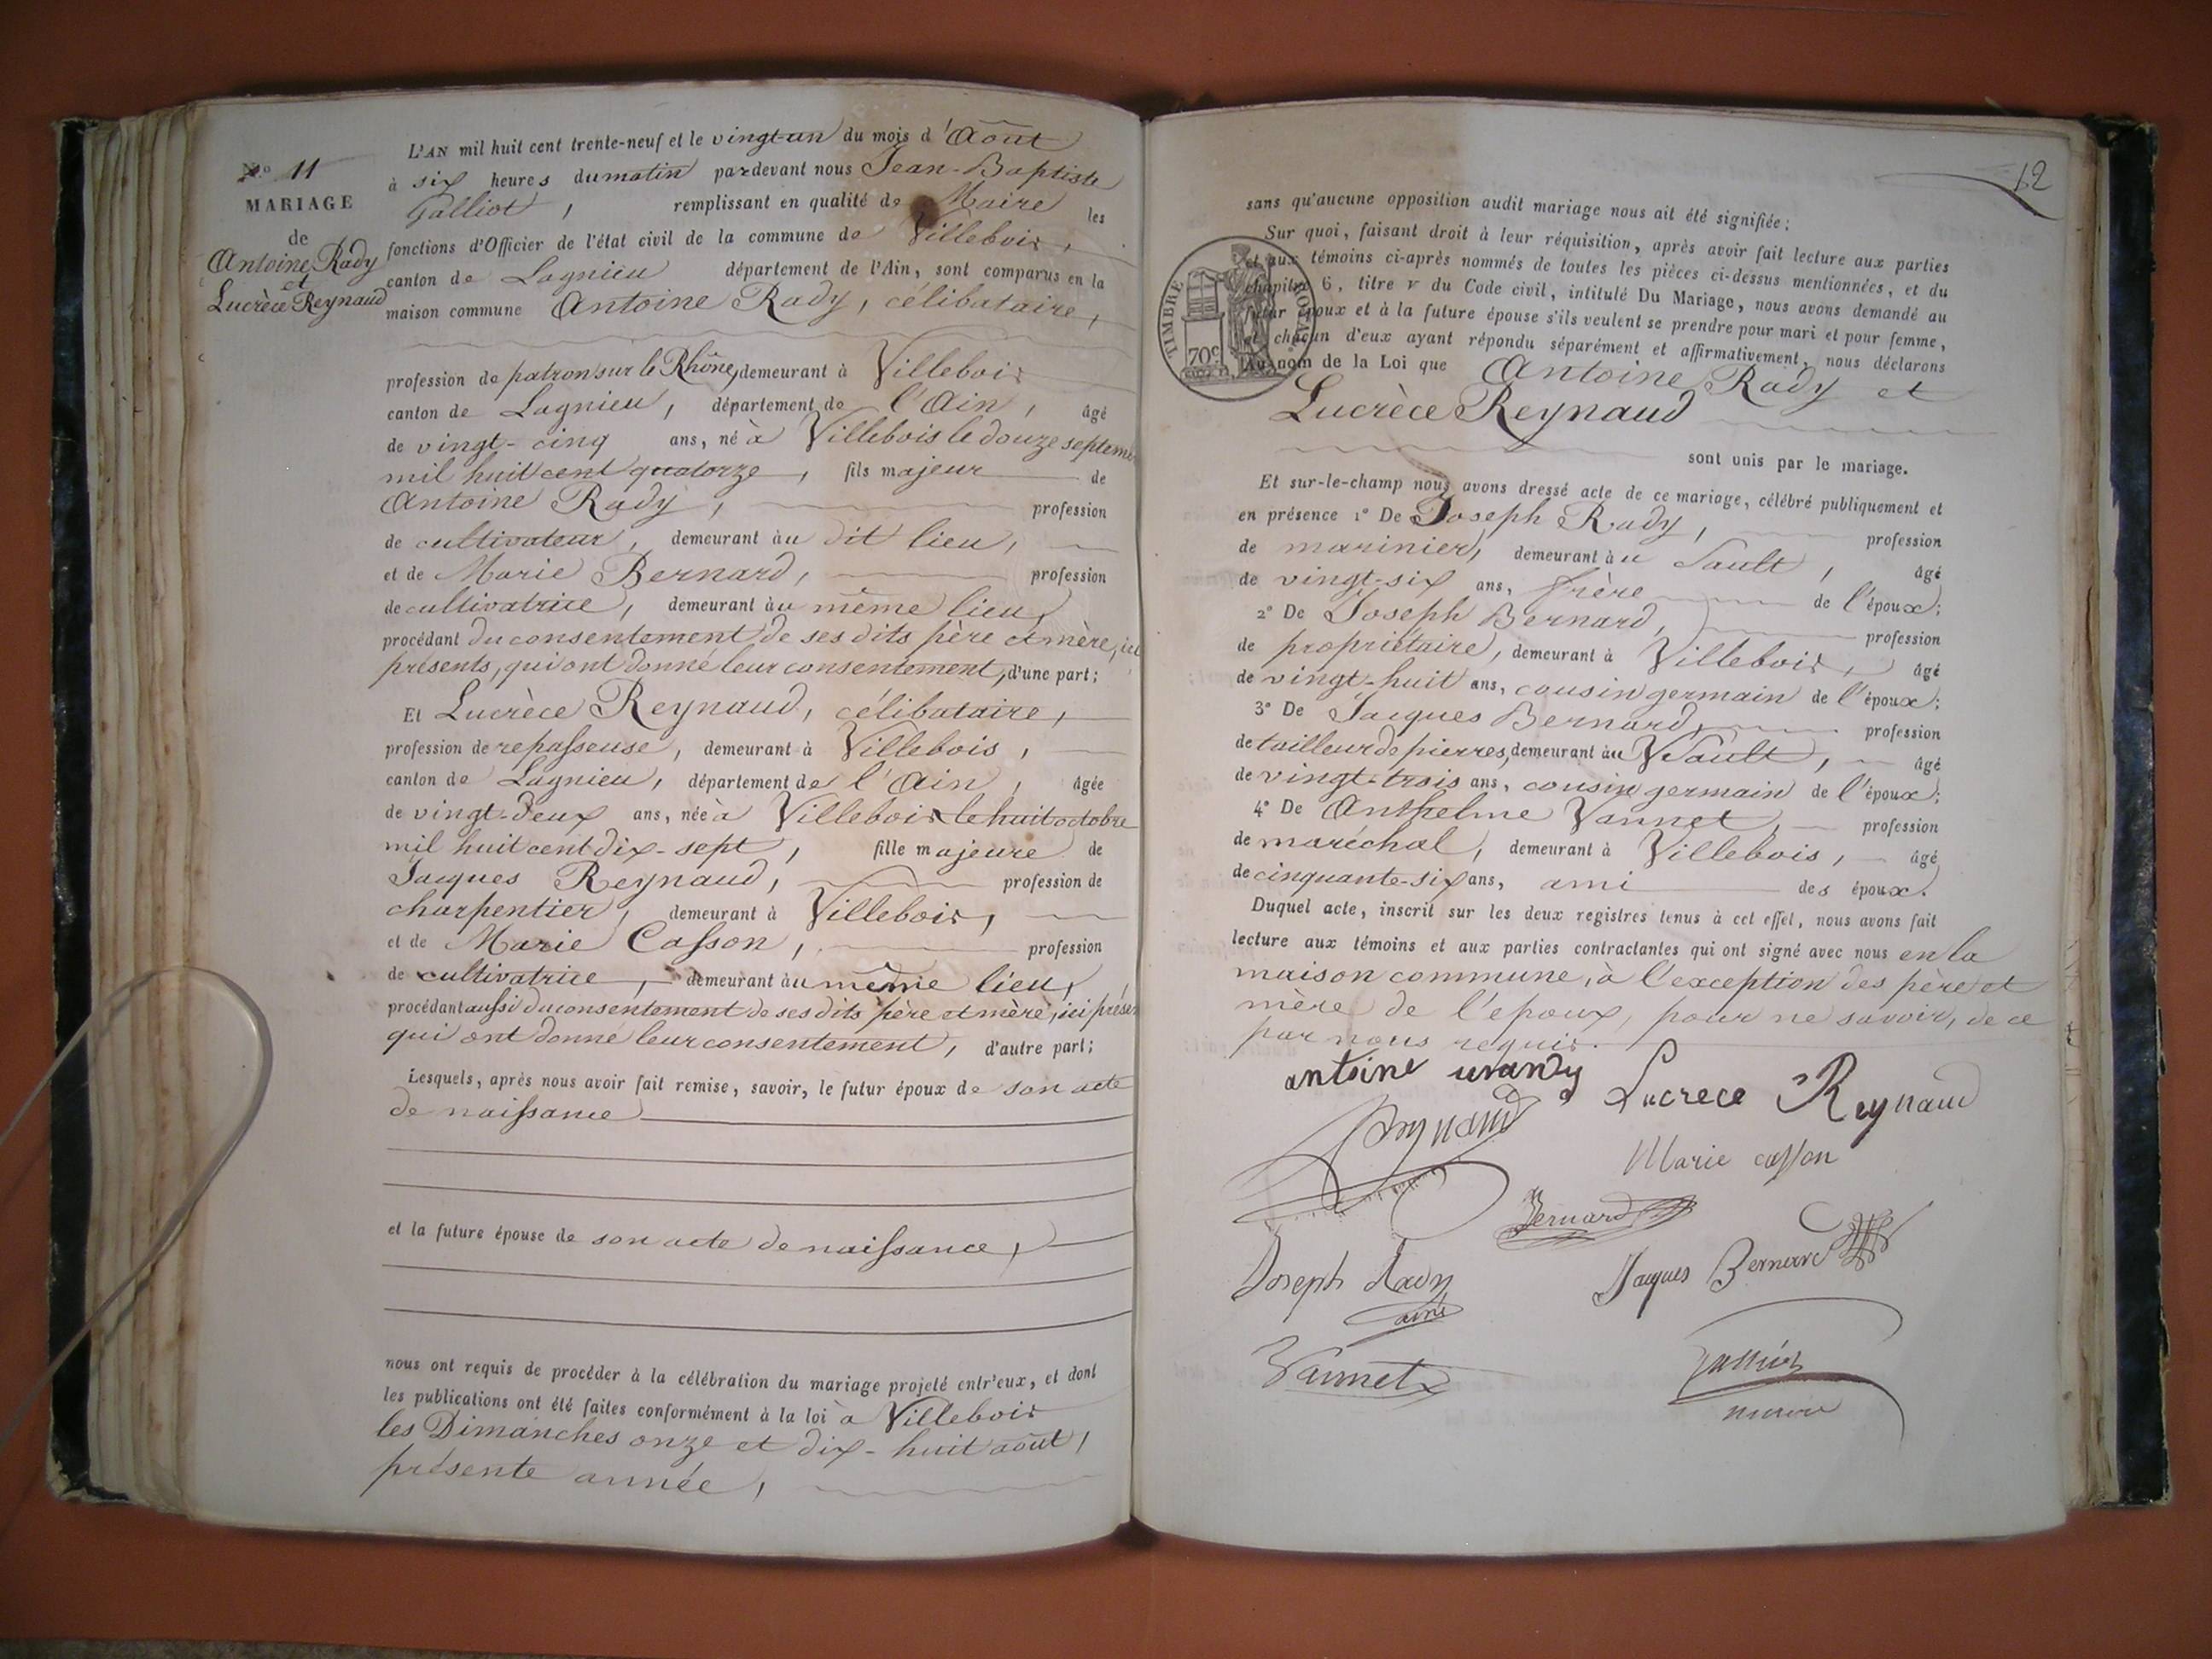 N.° 11
MARIAGE
de
Antoine Rady
et
Lucrèce Reynaud
L'AN mil huit cent trente-neuf et le vingt-un du mois d'Août
à six heures du matin pardevant nous Jean-Baptiste
Galliot, remplissant en qualité de Maire les
fonctions d'Officier de l'état civil de la commune de Villebois,
canton de Lagnieu département de l'Ain, sont comparus en la
maison commune Antoine Rady, célibataire,
profession de patron sur le Rhône, demeurant à Villebois
canton de Lagnieu, département de l'Ain, âgé
de vingt-cinq ans, né à Villebois le douze septembre
mil huit cent quatorze, fils majeur de
Antoine Rady, profession
de cultivateur, demeurant au dit lieu,
et de Marie Bernard, profession
de cultivatrice, demeurant au même lieu,
procédant du consentement de ses dits père et mère, ici
présents, qui ont donné leur consentement, d'une part;
Et Lucrèce Reynaud, célibataire,
profession de repasseuse, demeurant à Villebois,
canton de Lagnieu, département de l'Ain, âgée
de vingt-deux ans, née à Villebois le huit octobre
mil huit cent dix-sept, fille majeure de
Jacques Reynaud, profession de
charpentier, demeurant à Villebois,
et de Marie Casson, profession
de cultivatrice, demeurant au même lieu,
procédant aussi du consentement de ses dits père et mère, ici présen
qui ont donné leur consentement, d'autre part;
Lesquels, après nous avoir fait remise, savoir, le futur époux de son acte
de naissance
et la future épouse de son acte de naissance,
nous ont requis de procéder à la célébration du mariage projeté entr'eux, et dont
les publications ont été faites conformément à la loi à Villebois
les Dimanches onze et dix-huit août,
présente année,
12
sans qu'aucune opposition audit mariage nous ait été signifiée;
Sur quoi, faisant droit à leur réquisition, après avoir fait lecture aux parties
et aux témoins ci-après nommés de toutes les pièces ci-dessus mentionnées, et du
chapitre 6, titre v du Code civil, intitulé Du Mariage, nous avons demandé au
futur époux et à la future épouse s'ils veulent se prendre pour mari et pour femme,
et chacun d'eux ayant répondu séparément et affirmativement, nous déclarons
Au nom de la Loi que Antoine Rady et
TIMBRE ROYAL
70c
Lucrèce Reynaud
sont unis par le mariage.
Et sur-le-champ nous avons dressé acte de ce mariage, célébré publiquement et
en présence 1° De Joseph Rady, profession
de marinier, demeurant au Sault, âgé
de vingt-six ans, frère de l'époux;
2° De Joseph Bernard, profession
de propriétaire, demeurant à Villebois, âgé
de vingt-huit ans, cousin germain de l'époux;
3° De Jacques Bernard, profession
de tailleur de pierres, demeurant au Sault, âgé
de vingt-trois ans, cousin germain de l'époux;
4° De Anthelme Vannet, profession
de maréchal, demeurant à Villebois, âgé
de cinquante-six ans, ami des époux.
Duquel acte, inscrit sur les deux registres tenus à cet effet, nous avons fait
lecture aux témoins et aux parties contractantes qui ont signé avec nous en la
maison commune, à l'exception des père et
mère de l'epoux, pour ne savoir, de ce
par nous requis.
antoine Lucrece Reynaud
Reynaud
Marie casson
Bernard
Joseph Rady
ainé
Jaques Bernard
Vannet
Galliot
maire